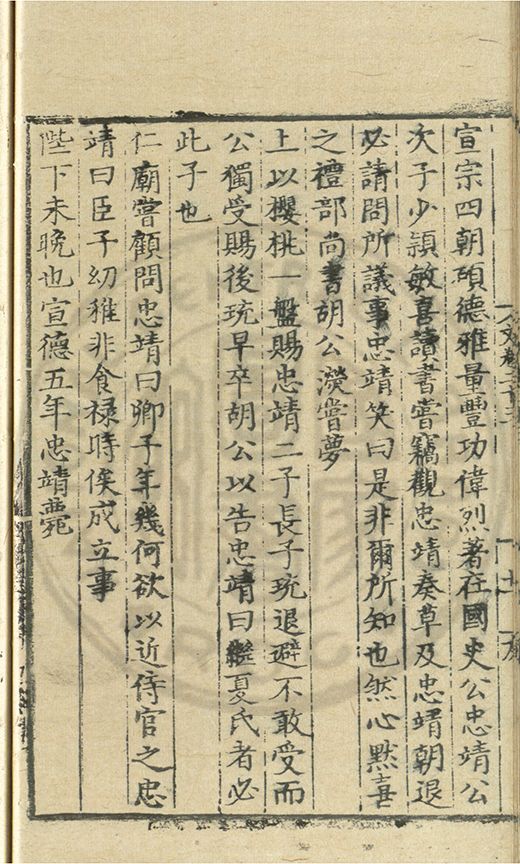 宣宗四朝碩德雅量豐功偉烈著在國史公忠靖公
次子少頴敏喜讀書嘗竊觀忠靖奏草及忠靖朝退
必請問所議事忠靖笑曰是非爾所知也然心默喜
之禮部尚書胡公濙嘗夢
上以櫻桃一盤賜忠靖二子長子琉退避不敢受而
公獨受賜後琉早卒胡公以告忠靖曰繼夏氏者必
此子也
仁廟嘗顧問忠靖曰卿子年幾何欲以近侍官之忠
靖曰臣子幼稚非食禄時俟成立事
陛下未晚也宣德五年忠靖薨